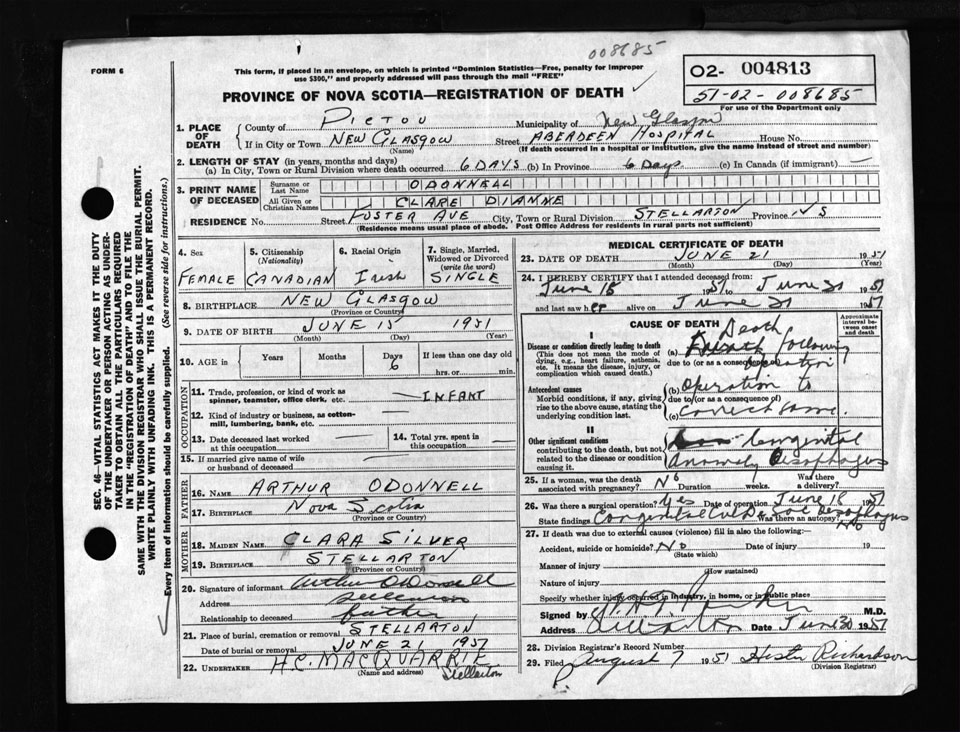 008685
FORM 6
This form, if placed in an envelope, on which is printed "Dominion Statistics—Free, penalty for improper
use $300," and properly addressed will pass through the mail "FREE"
02- 004813
51-02-008685
For use of the Department only
PROVINCE OF NOVA SCOTIA—REGISTRATION OF DEATH
1. PLACE OF DEATH County of Pictou Municipality of New Glasgow
If in City or Town NEW GLASGOW (Name) Street ABERDEEN HOSPITAL House No.
(If death occurred in a hospital or institution, give the name instead of street and number)
2. LENGTH OF STAY (in years, months and days)
(a) In City, Town or Rural Division where death occurred 6 DAYS (b) In Province 6 Days (c) In Canada (if immigrant) —
3. PRINT NAME OF DECEASED Surname or Last Name ODONNELL
All Given or Christian Names CLARE DIANNE
RESIDENCE No. Street FOSTER AVE City, Town or Rural Division STELLARTON Province N S
(Residence means usual place of abode. Post Office Address for residents in rural parts not sufficient)
SEC. 46—VITAL STATISTICS ACT MAKES IT THE DUTY
OF THE UNDERTAKER OR PERSON ACTING AS UNDER-
TAKER TO OBTAIN ALL THE PARTICULARS REQUIRED
IN THE "REGISTRATION OF DEATH" AND TO FILE THE
SAME WITH THE DIVISION REGISTRAR WHO SHALL ISSUE THE BURIAL PERMIT.
WRITE PLAINLY WITH UNFADING INK. THIS IS A PERMANENT RECORD.
Every item of information should be carefully supplied. (See reverse side for instructions.)
4. Sex FEMALE
5. Citizenship (Nationality) CANADIAN
6. Racial Origin Irish
7. Single, Married, Widowed or Divorced (write the word) SINGLE
8. BIRTHPLACE NEW GLASGOW
(Province or Country)
9. DATE OF BIRTH JUNE 15 1951
(Month) (Day) (Year)
10. AGE in Years Months Days 6 If less than one day old hrs. or min.
OCCUPATION
11. Trade, profession, or kind of work as spinner, teamster, office clerk, etc. — INFANT
12. Kind of industry or business, as cotton-mill, lumbering, bank, etc. —
13. Date deceased last worked at this occupation —
14. Total yrs. spent in this occupation —
15. If married give name of wife or husband of deceased —
FATHER
16. NAME ARTHUR ODONNELL
17. BIRTHPLACE Nova Scotia
(Province or Country)
MOTHER
18. MAIDEN NAME CLARA SILVER
19. BIRTHPLACE STELLARTON
(Province or Country)
20. Signature of informant Arthur ODonnell
Address Stellarton
Relationship to deceased father
21. Place of burial, cremation or removal STELLARTON
Date of burial or removal JUNE 21 1951
22. UNDERTAKER H.C. MACQUARRIE Stellarton
(Name and address)
MEDICAL CERTIFICATE OF DEATH
23. DATE OF DEATH JUNE 21 1951
(Month) (Day) (Year)
24. I HEREBY CERTIFY that I attended deceased from
June 18 1951 to June 21 1951
and last saw her alive on June 21 1951
CAUSE OF DEATH
Approximate interval between onset and death
I
Disease or condition directly leading to death
(This does not mean the mode of dying, e.g., heart failure, asthenia, etc. It means the disease, injury, or complication which caused death.)
(a) Death following
due to (or as a consequence of) operation
Antecedent causes
Morbid conditions, if any, giving rise to the above cause, stating the underlying condition last.
(b) operation to
due to (or as a consequence of)
(c) correct same.
II
Other significant conditions
contributing to the death, but not related to the disease or condition causing it.
Congenital
anomaly Oesophagus
25. If a woman, was the death associated with pregnancy? No Duration weeks. Was there a delivery?
26. Was there a surgical operation? Yes Date of operation June 18 1951
State findings Congenital Cul De Sac Oesophagus Was there an autopsy? No
27. If death was due to external causes (violence) fill in also the following:
Accident, suicide or homicide? No Date of injury 19
(State which)
Manner of injury
(How sustained)
Nature of injury
Specify whether injury occurred in industry, in home, or in public place
Signed by M.D.
Address Stellarton Date June 30 1951
28. Division Registrar's Record Number
29. Filed August 7 1951 Hester Richardson
(Division Registrar)